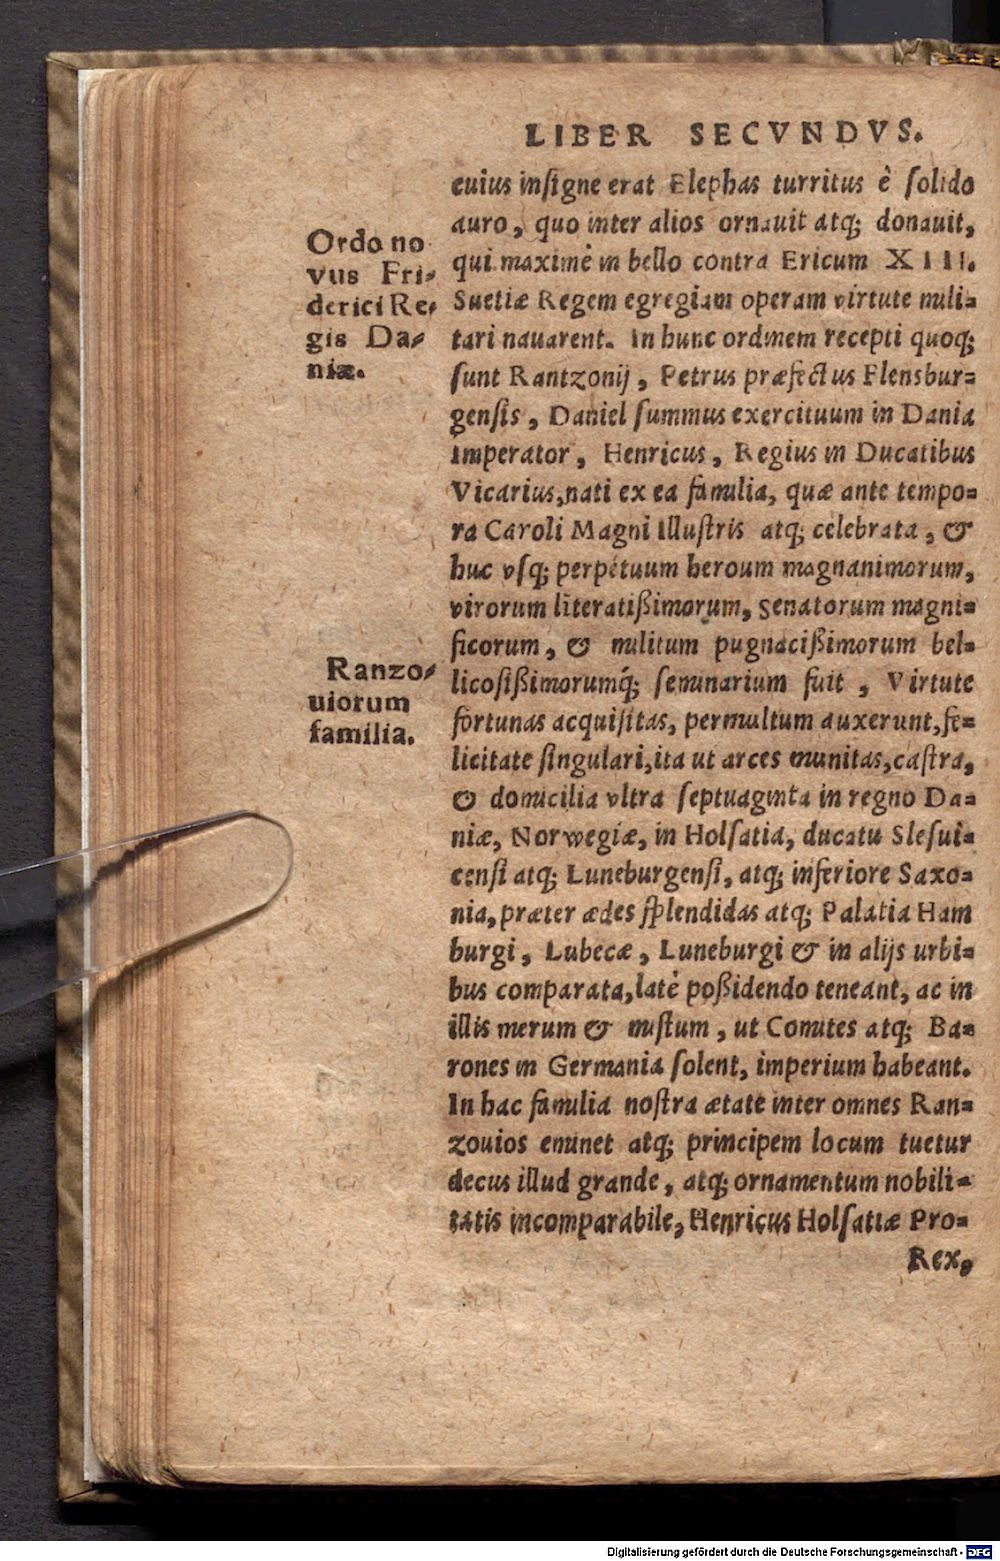 LIBER SECVNDVS.
Ordo no
vus Fri-
derici Re-
gis Da-
niæ.
cuius insigne erat Elephas turritus è solido
auro, quo inter alios ornauit atq; donauit,
qui maximè in bello contra Ericum XIIII.
Suetiæ Regem egregiam operam virtute mili-
tari nauarent. In hunc ordinem recepti quoq;
sunt Rantzonij, Petrus præfectus Flensbur-
gensis, Daniel summus exercituum in Dania
Imperator, Henricus, Regius in Ducatibus
Vicarius, nati ex ea familia, quæ ante tempo-
ra Caroli Magni Illustris atq; celebrata, &
huc vsq; perpetuum heroum magnanimorum,
virorum literatißimorum, Senatorum magni-
ficorum, & militum pugnacißimorum bel-
Ranzo-
uiorum
familia.
licosißimorumq́; seminarium fuit, Virtute
fortunas acquisitas, permultum auxerunt, fe-
licitate singulari, ita ut arces munitas, castra,
& domicilia vltra septuaginta in regno Da-
niæ, Norwegiæ, in Holsatia, ducatu Slesui-
censi atq; Luneburgensi, atq; inferiore Saxo-
nia, præter ædes splendidas atq; Palatia Ham
burgi, Lubecæ, Luneburgi & in alijs urbi-
bus comparata, latè poßidendo teneant, ac in
illis merum & mistum, ut Comites atq; Ba-
rones in Germania solent, imperium habeant.
In hac familia nostra ætate inter omnes Ran-
zouios eminet atq; principem locum tuetur
decus illud grande, atq; ornamentum nobili-
tatis incomparabile, Henricus Holsatiæ Pro-
Rex,
Digitalisierung gefördert durch die Deutsche Forschungsgemeinschaft - DFG